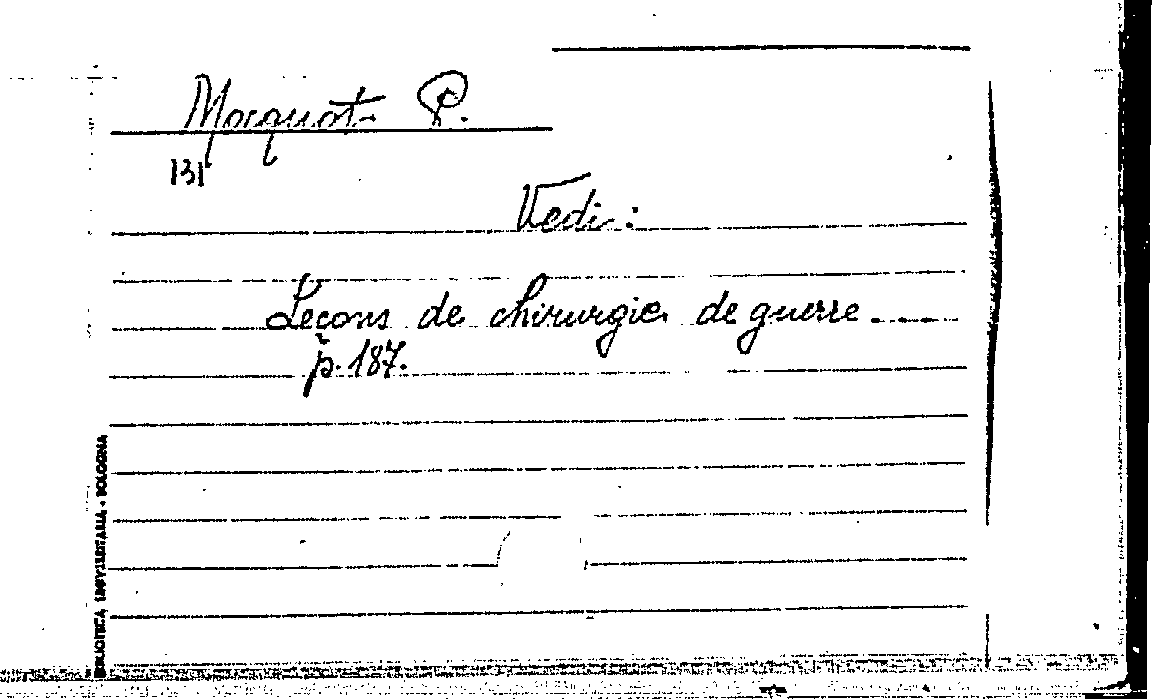 Mocquot P.
131
Vedi:
Leçons de chirurgie de guerre ....
p. 187.
BIBLIOTECA UNIVERSITARIA - BOLOGNA